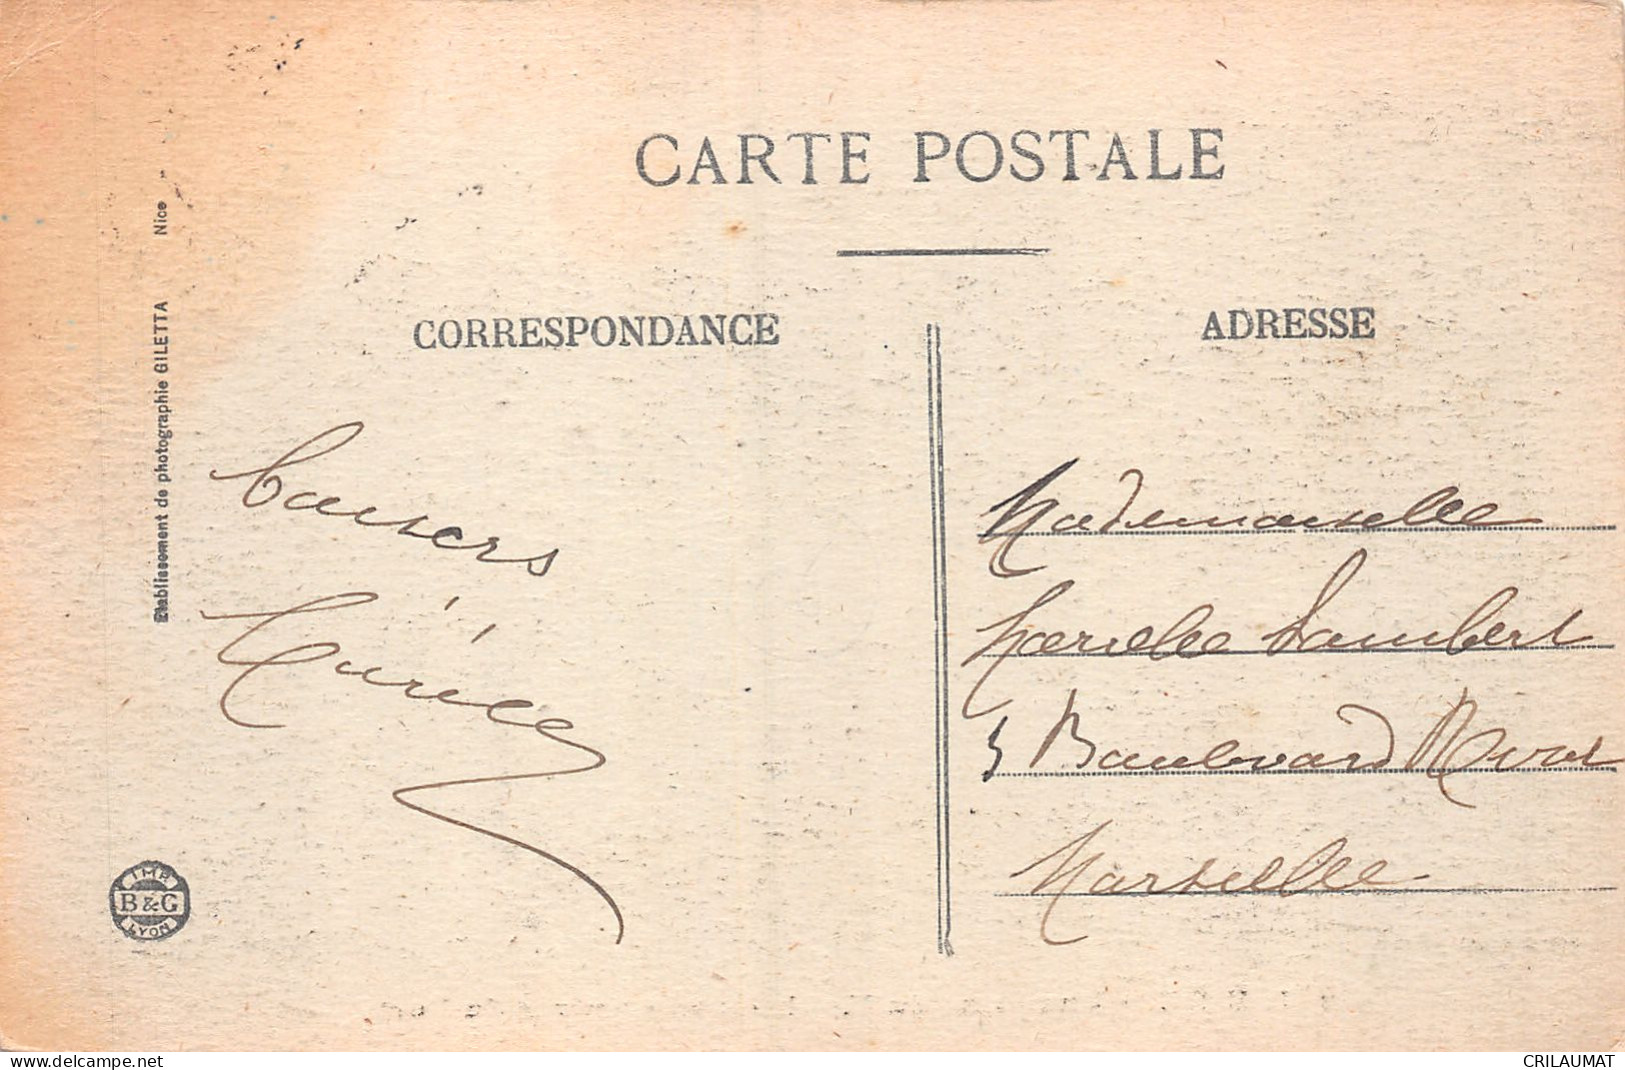 CARTE POSTALE
CORRESPONDANCE
ADRESSE
Etablissement de photographie GILETTA Nice
Baisers
Mademoiselle
Lambert
5 Boulevard
Marseille
IMP.
B&G
LYON
https://www.delcampe.net
CRILAUMAT